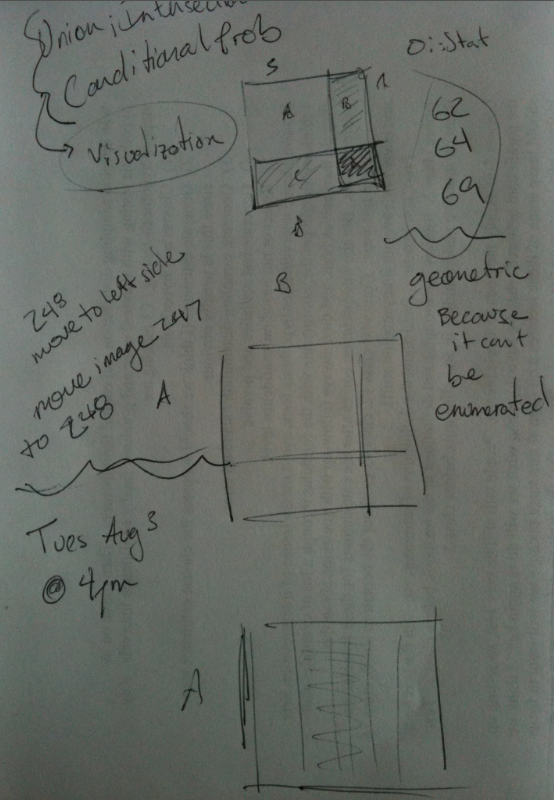 Union; Intersection
Conditional Prob
Visualization
S
A
B
1
Oi::Stat
62
64
69
geometric
Because
it can't
be
enumerated
248
move to left side
move image 247
to 248
B
A
Tues Aug 3
@ 4pm
A